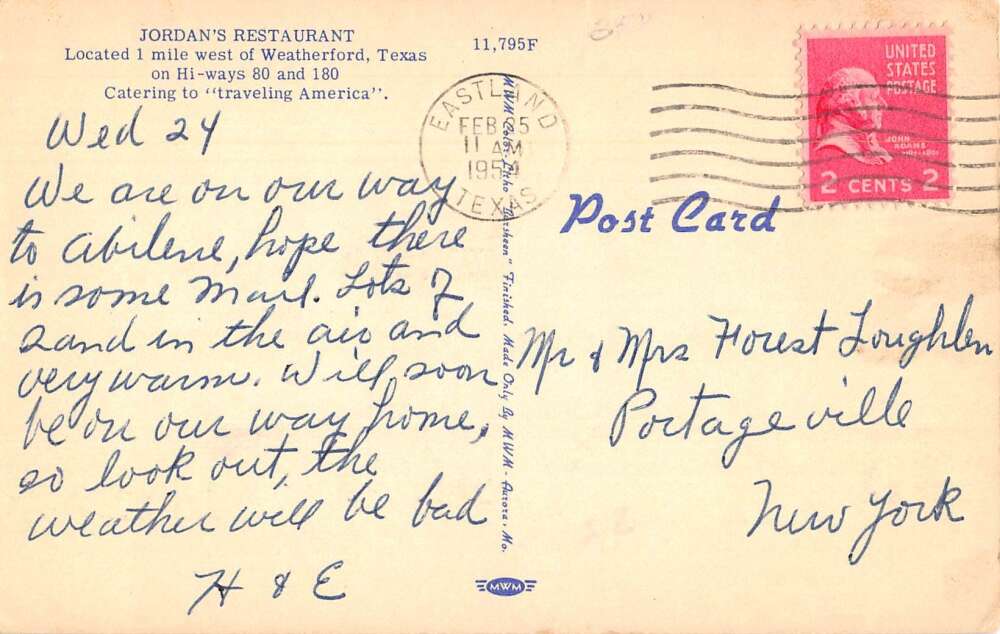 JORDAN'S RESTAURANT
Located 1 mile west of Weatherford, Texas
on Hi-ways 80 and 180
Catering to "traveling America".
11,795F
Wed 24
We are on our way
to Abilene, hope there
is some mail. Lots of
sand in the air and
very warm. Will soon
be on our way home,
so look out, the
weather will be bad
H & E
EASTLAND
FEB 25
11 AM
195
TEXAS
UNITED
STATES
POSTAGE
JOHN
ADAMS
2 CENTS 2
Post Card
Mr & Mrs Forest Loughlen
Portageville
New York
MWM Color-Litho "Finished. Made Only By MWM - Aurora, Mo.
MWM